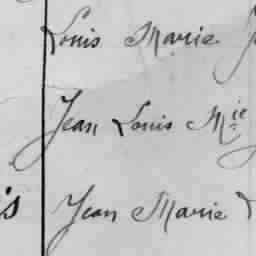 Louis Marie
Jean Louis Mie
is Jean Marie